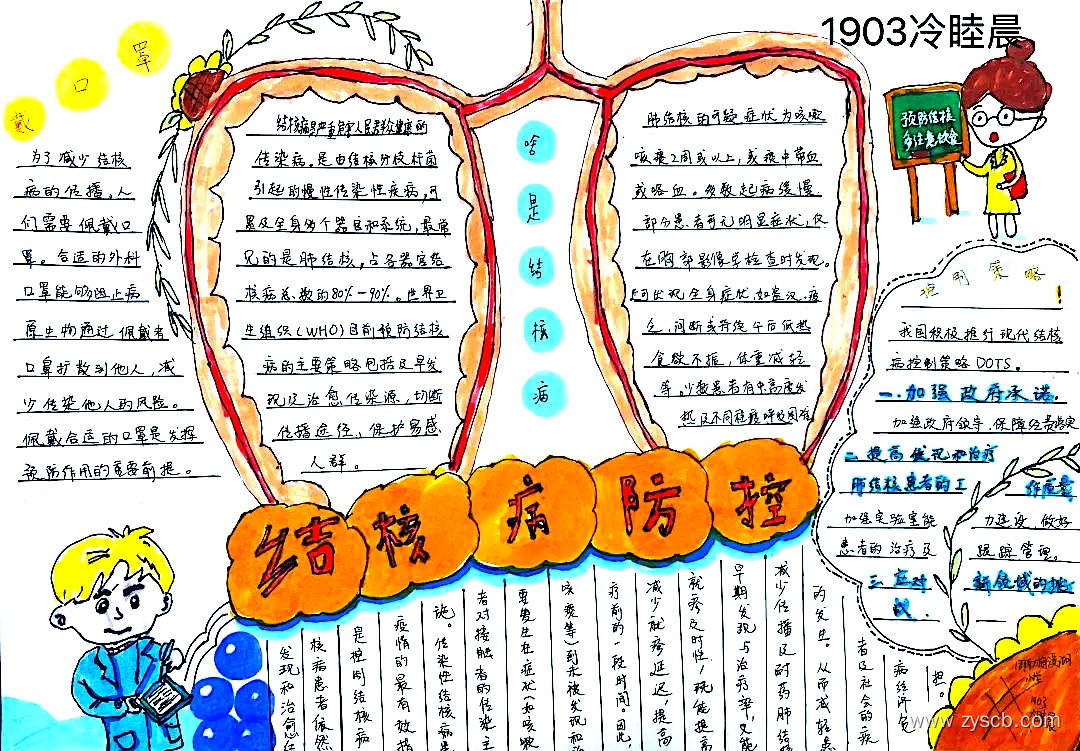 1903冷睦晨
戴口罩
为了减少结核
病的传播,人
们需要佩戴口
罩。合适的外科
口罩能够阻止病
原生物通过佩戴者
口鼻扩散到他人,减
少传染他人的风险。
佩戴合适的口罩是发挥
预防作用的重要前提。
结核病是严重危害人民群众健康的
传染病。是由结核分枝杆菌
引起的慢性传染性疾病,可
累及全身多个器官和系统,最常
见的是肺结核,占各器官结
核病总数的80%-90%。世界卫
生组织(WHO)目前预防结核
病的主要策略包括及早发
现及治愈传染源,切断
传播途径,保护易感
人群。
啥是结核病
肺结核的可疑症状为咳嗽
咳痰2周或以上,或痰中带血
或咯血。多数起病缓慢
部分患者可无明显症状,仅
在胸部影像学检查时发现。
可出现全身症状,如盗汗、疲
乏,间断或持续午后低热
食欲不振,体重减轻
等。少数患者有中高度发
热及不同程度呼吸困难
预防结核
多注意饮食
控制策略!
我国积极推行现代结核
病控制策略DOTS。
一.加强政府承诺.
加强政府领导、保障经费落实
二.提高发现和治疗
肺结核患者的工
作质量
加强实验室能
力建设,做好
患者的治疗及
跟踪管理。
三.应对
新领域的挑
战.
结核病防控
担。
病经济负
者及社会的疾
的发生。从而减轻患
减少传播及耐药肺结
早期发现与治疗率,又能
就诊及时性,既能提高
减少就诊延迟,提高
疗前的一段时间。因此
咳痰等)到未被发现和治
要发生在症状(如咳嗽
者对接触者的传染主
施。传染性结核病患
疫情的最有效措
是控制结核病
核病患者依然
发现和治愈结
1903
www.zyscb.com